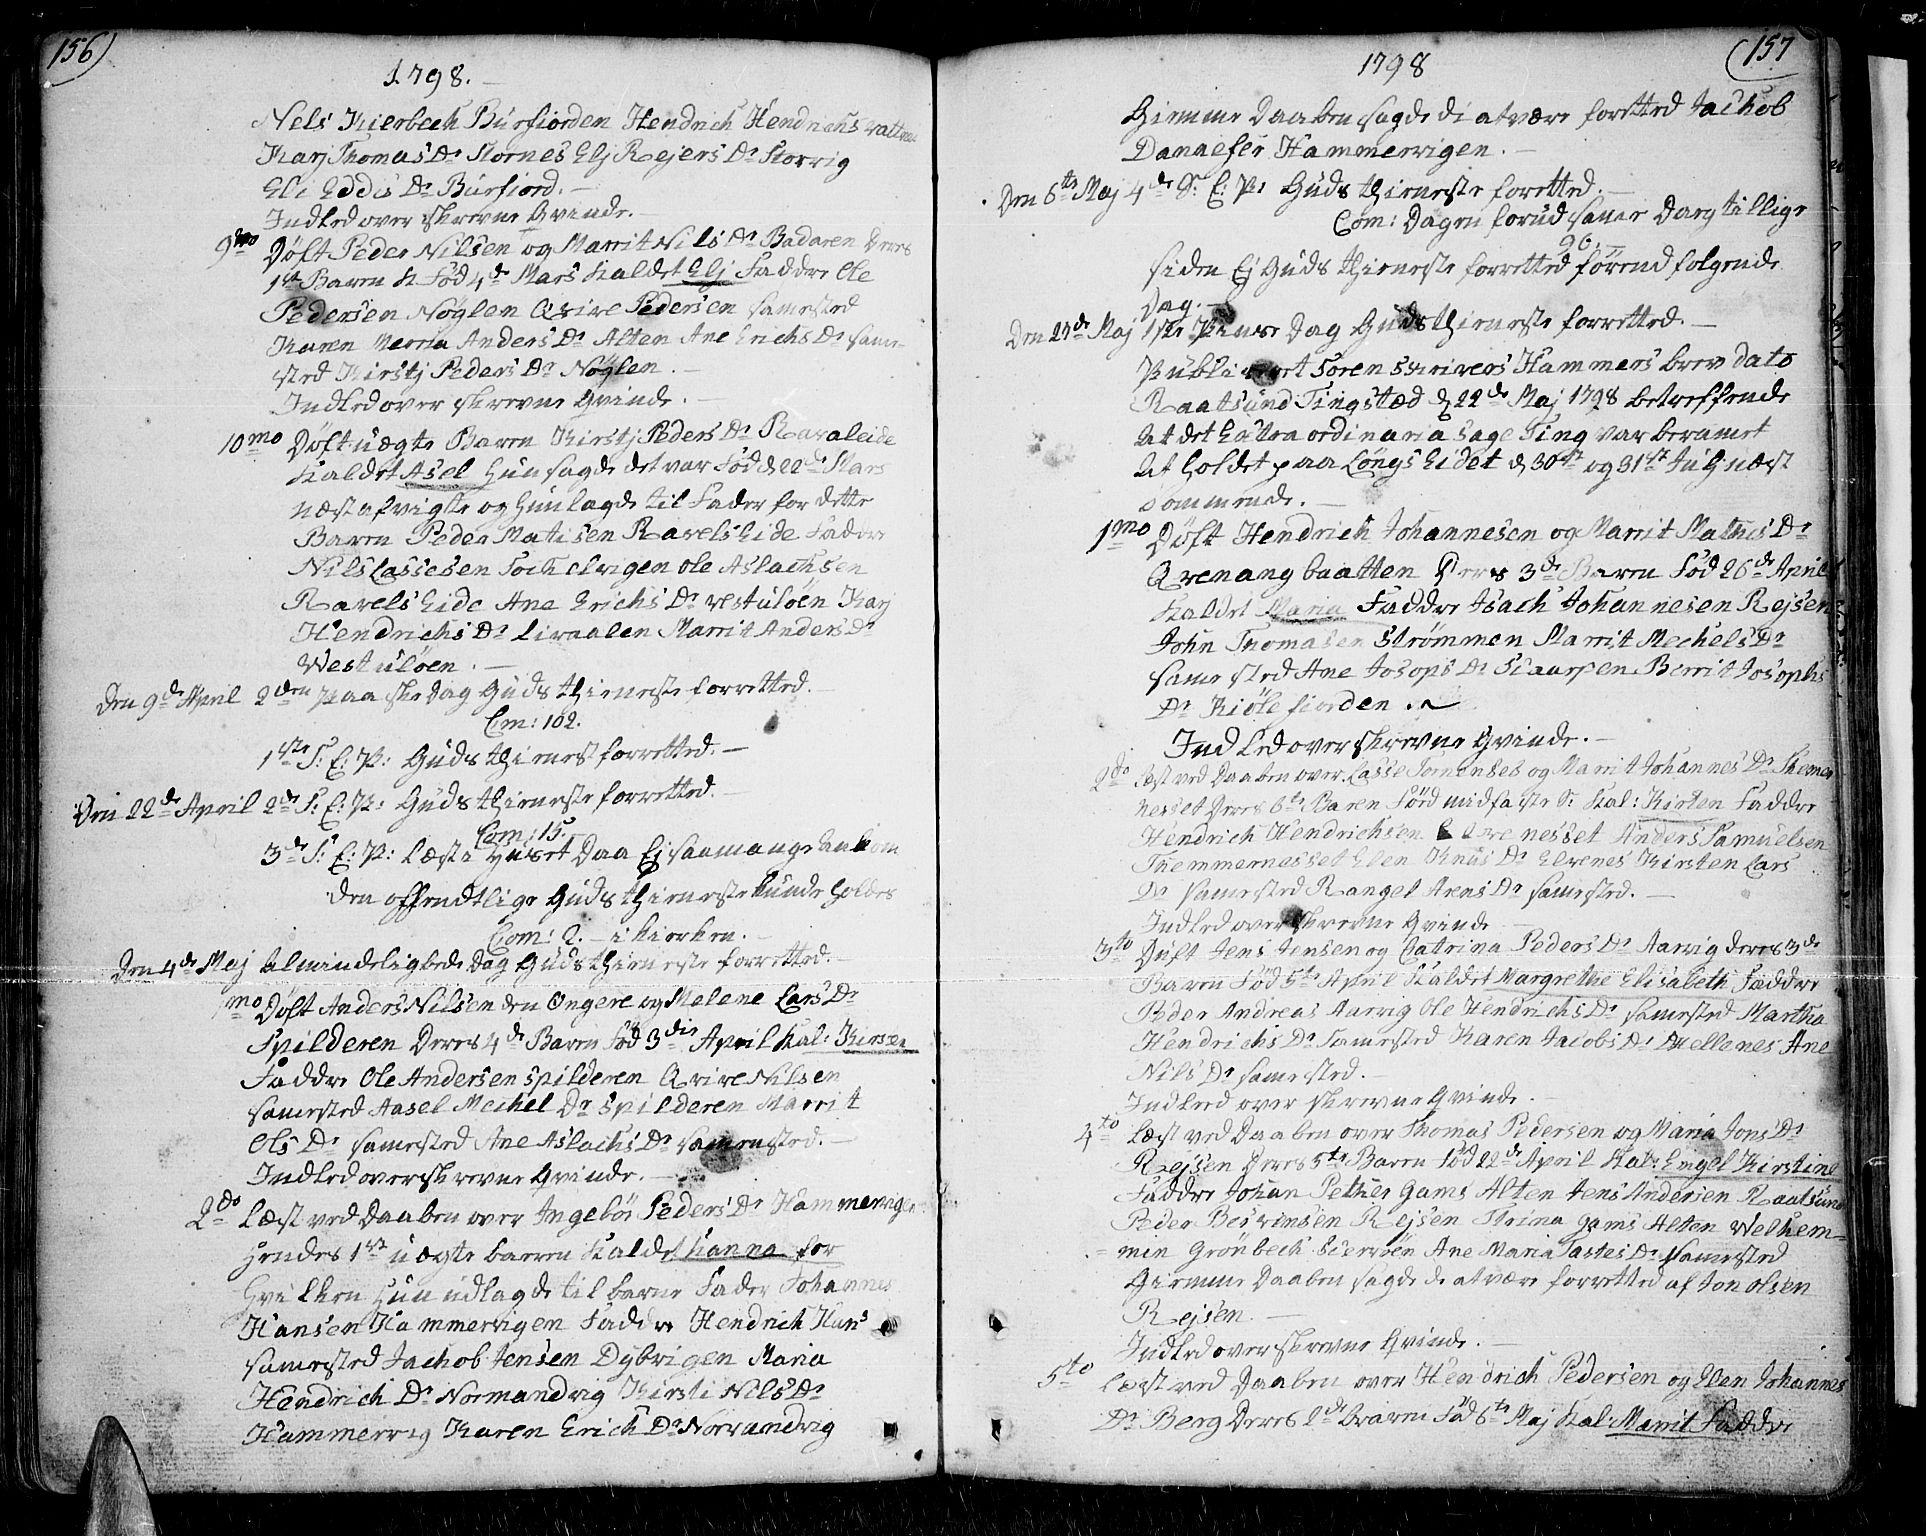 156)
1798.
Nels Kierbech Burfiorden Hendrich Hendrichs
Karj Thomas Dr Stornes Elj Rejers Dr Storvig
Eli Eddis Dr Burfiord.
Indled over skrevne Qvinde.
9no Døft Peder Nilsen og Marrit Nils Dr Badaren Deres
1ste Baren Fød 4de Mars Kaldet Elj Faddre Ole
Pedersen Nøÿlen Qvire Pedersen samested
Karen Maria Anders Dr Alten Ane Erichs Dr same-
sted Kirstj Peders Dr Nøÿlen.
Indled over skrevne Qvinde.
10mo Døft uægte Baren Kirstj Peders Dr Ravaleide
Kaldet Asel Hun sagde det var Fød d 22de Mars
næst afvigte og Hun lagde til Fader for dette
Baren Peder Matisen Ravelseide Faddre
Nils Lassesen Ole Aslachsen
Ravelseide Ane Erichs Dr vest uløen Karj
Hendrichs Dr Marrit Anders Dr
West uløen.
Den 9de April 2den Paaske dag Guds thieneste forretted.
Com: 102.
1ste S: E: P: Guds thienest forretted.
Den 22de April 2de S: E: P: Guds thieneste forretted.
Com: 15.
3de S: E: P: Læst i Huset Daa Ej saamange ankom
den offendtlige Guds thieneste kunde holdes
Com: 2. i kierken.
Den 4de Maj Almindelig bede Dag Guds thieneste forretted.
1mo Døft Anders Nilsen den Ongere og Melene Lars Dr
Spilderen Deres 4de Baren Fød 3die April Kal: Kirsten
Faddre Ole Andersen Spilderen Qvire Nilsen
samested Aasel Mechel Dr Spilderen Marrit
Ols Dr samested Ane Aslachs Dr samensted.
Indled overskrevne Qvinde.
2do Læst ved Daaben over Ingebor Peders Dr Hammervigen
Hendes 1ste uægte barren Kaldet Hanna for
Hvilken Hun udlagde til barne Fader Johannes
Hansen Hammervigen Faddre Hendrich Hans
samested Jachob Jensen Dybvigen Maria
Hendrich Dr Normandvig Kirsti Nils Dr
Hammervig Karen Erich Dr Norvandvig
157
1798
Hiemme Daaben sagde di at være foretted Jachob
Hammervigen.
Den 6te Maj 4de S: E: P: Guds thieneste foretted.
Com: Dagen forud samme Dag tillige
96.
siden Ej Guds thieneste forretted førend folgende
Dag.
Den 27de Maj 1ste Pinse Dag Guds thieneste forretted.
Publiceret Soren skrivers Hammers brev dato
Raatsund Tingstæd d 22de Maj 1798 betreffende
At det Extra ordinaria sage Ting var beramet
At Holdet paa Løngs Eidet d 30te og 31te Julj næst
kommende.
1mo Døft Hendrich Johannesen og Marrit Mathis Dr
Qvenang baatten Deres 3de Baren Fød 26de April
Kaldet Maria Faddre Isach Johannesen Rejsen
John Thomasen Strømmen Marrit Mechels Dr
samested Ane Josops Dr Berrit Josophs
Dr Kiølefiorden.
Indled over skrevne Qvinde.
2do Læst ved Daaben over Lasse og Marrit Johannes Dr
nesset Deres 6te Baren Førd midfaste S: Kal: Kirsten Faddre
Hendrich Hendrichsen Elvenesset Anders Samuelsen
Themmernesset Elen Knus Dr Elvenes Kirsten Lars
Dr samested Rangel Arens Dr samested.
Indled over skrevne Qvinde
3to Døft Jens Jensen og Catrina Peders Dr Aarvig deres 3de
Baren Fød 5te April Kaldet Margrethe Elisabeth Faddre
Peder Andreas Aarvig Ole Hendrichs Dr samested Martha
Hendrichs Dr samested Karen Jacobs Dr Mellenes Ane
Nils Dr samested.
Indled over skrevne Qvinde.
4to Læst ved Daaben over Thomas Pedersen og Maria Jons Dr
Rejsen Deres 5te Baren Fød 22de April Kal: Engel Kirstine
Faddre Johan Pether Gams Alten Jens Andersen Raatsund
Peder Rejsen Strina Gams Alten Welhem-
= min Grønbech Ane Maria Dr samested
Hiemme Daaben sagde de at være forretted af Jon Olsen
Rejsen.
Indled over skrevne Qvinde.
5to Læst ved Daaben over Hendrich Pedersen og Elen Johannes
Dr Berg Deres 2de Baren Fød 6te Maj Kal: Marrit Faddre